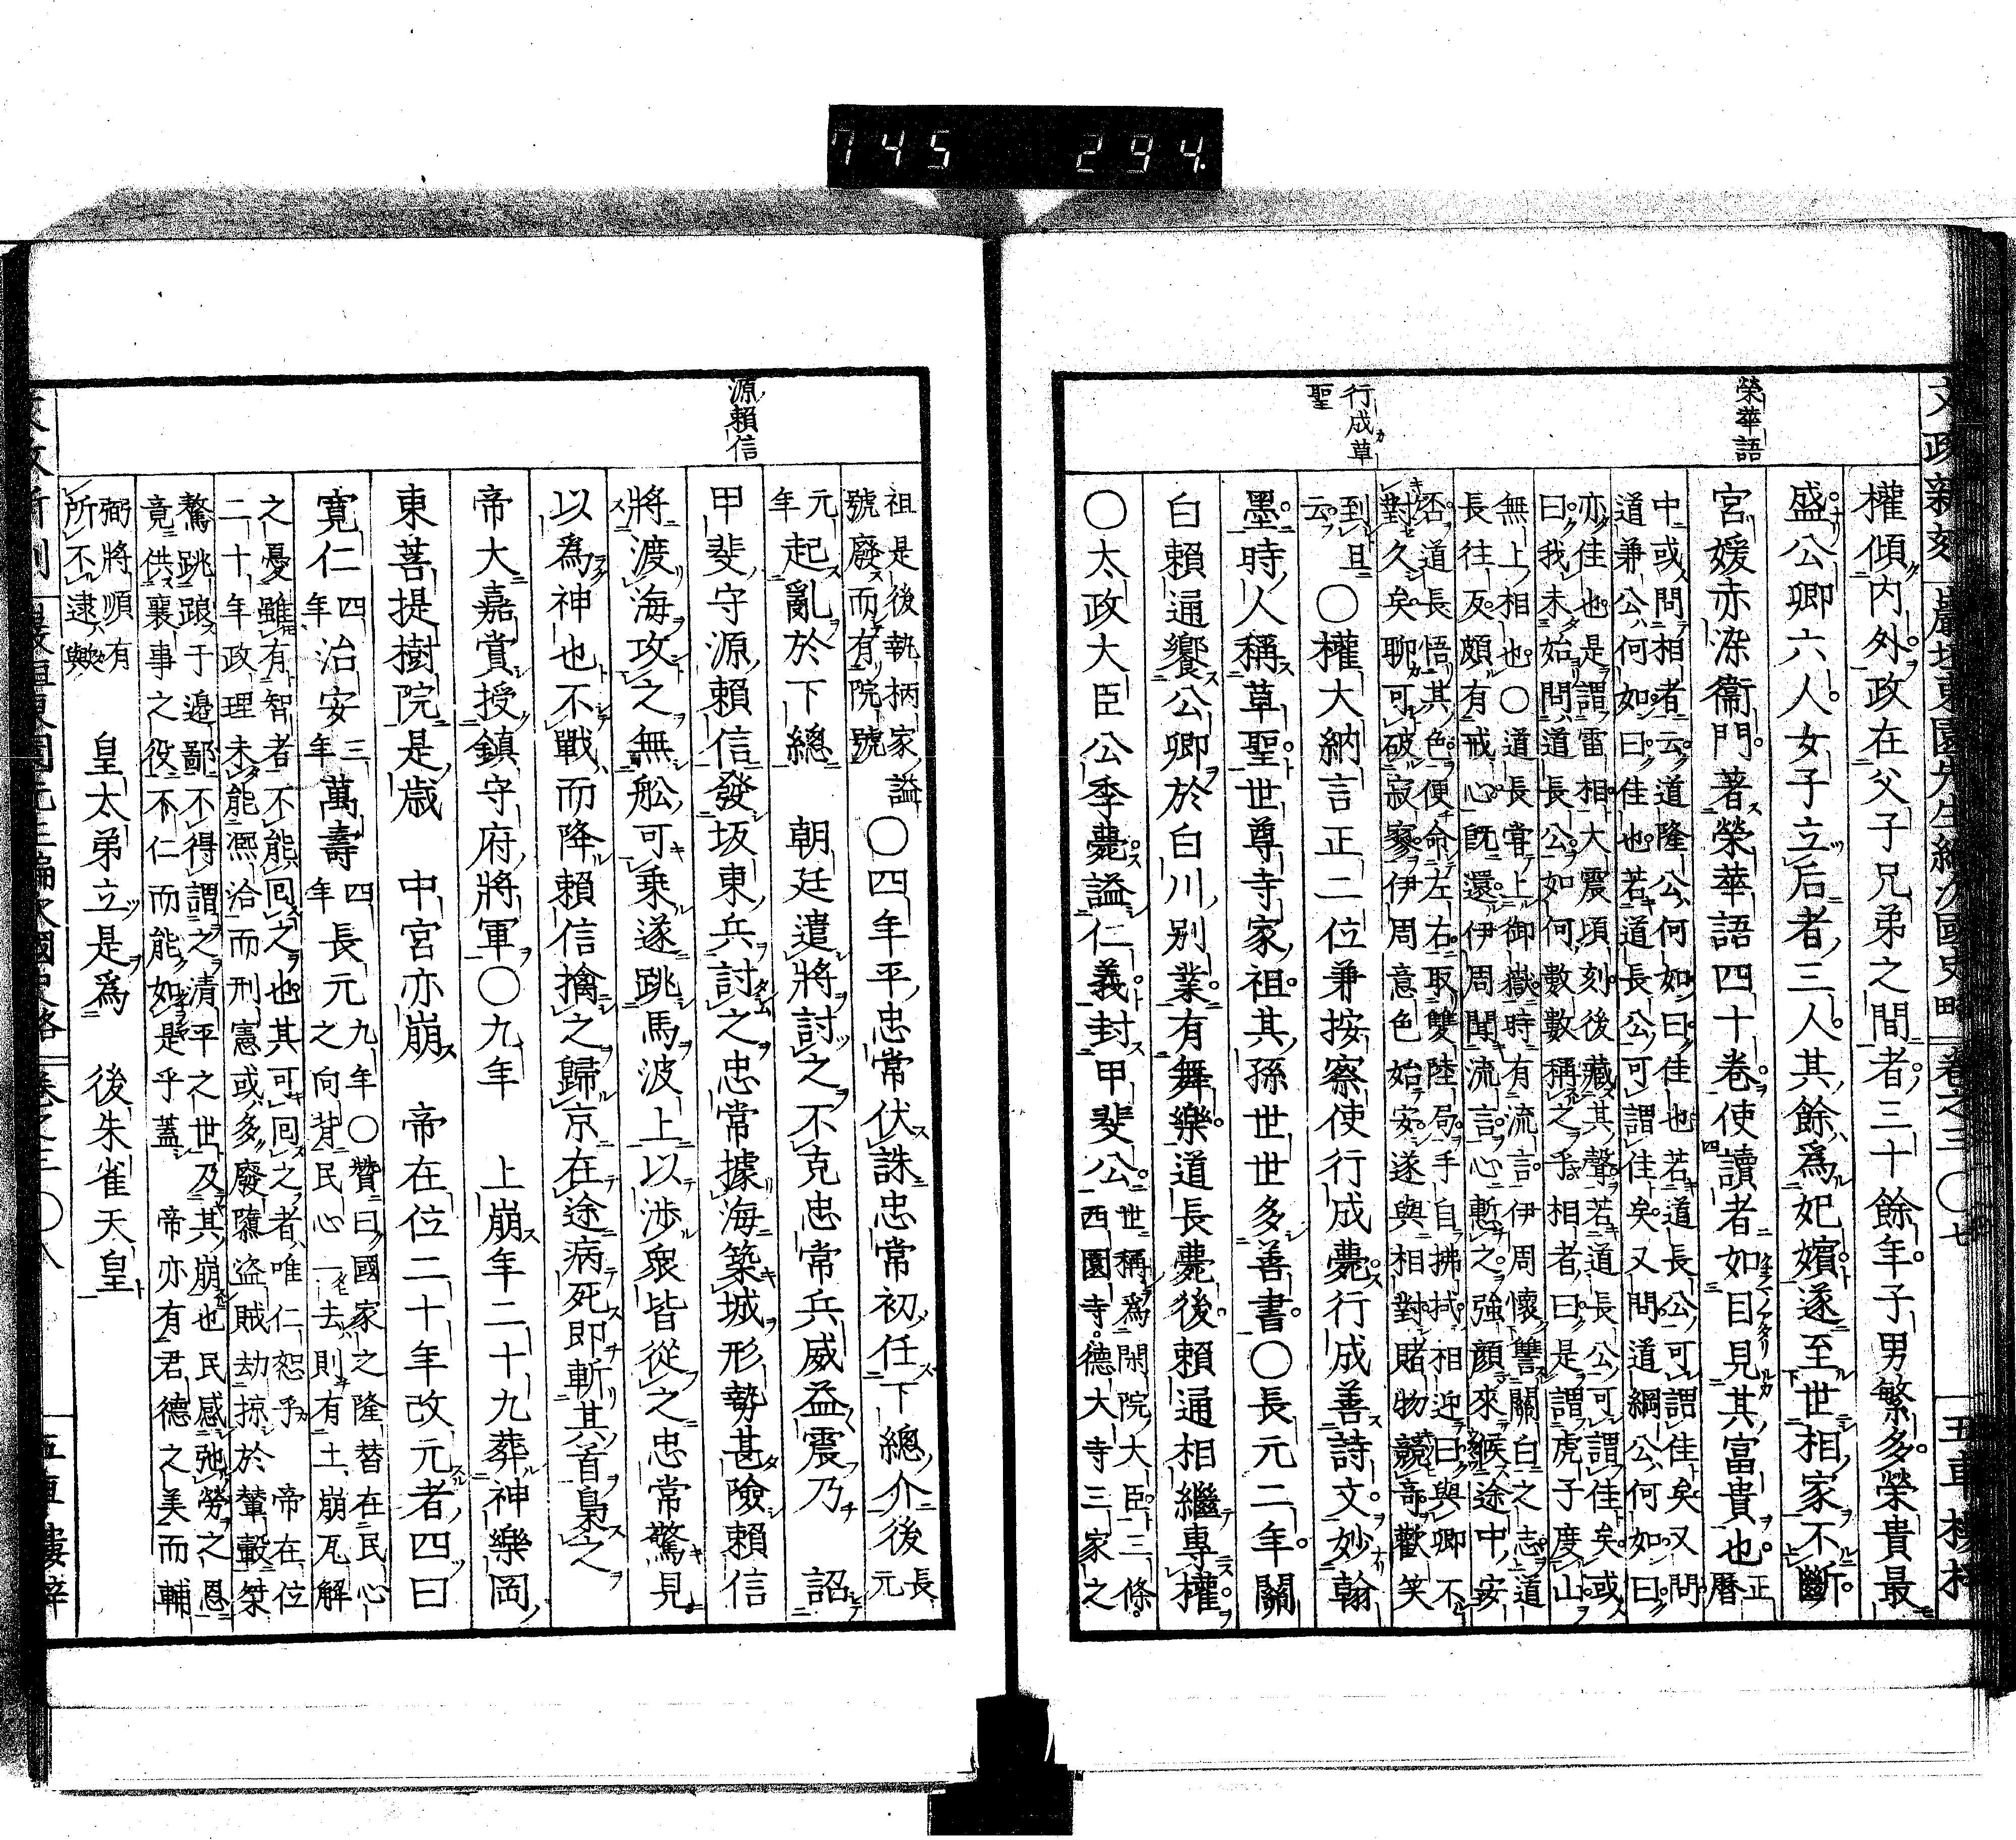 745 294
文政新刻 巖垣東園先生編次國史略 卷之三 〇七 五車樓梓
榮華語
行成草
聖
權傾内外政在父子兄弟之間者三十餘年子男繁多榮貴最
盛公卿六人女子立后者三人其餘爲妃嬪遂至世相家不斷
宮媛赤染衞門著榮華語四十卷使讀者如目見其富貴也正
曆
中或問相者云道隆公何如曰佳也若道長公可謂佳矣又問
道兼公何如曰佳也若道長公可謂佳矣又問道綱公何如曰
亦佳也是謂雷相大震頃刻後藏其聲若道長公可謂佳矣或
曰我未始問道長公如何數數稱之乎相者曰是謂虎子度山
無上相也〇道長嘗上御嶽時有流言伊周懷讐關白之志道
長往反頗有戒心既還伊周聞流言心慙之強顏來候途中安
否道長悟其色便命左右取雙陸局手自拂拭相迎曰與卿不
對久矣聊可破寂寥伊周意色始安遂與相對賭物競奇歡笑
到旦
云
〇權大納言正二位兼按察使行成薨行成善詩文妙翰
墨時人稱草聖世尊寺家祖其孫世世多善書〇長元二年關
白賴通饗公卿於白川別業有舞樂道長薨後賴通相繼專權
〇太政大臣公季薨謚仁義封甲斐公世稱爲閑院大臣三條
西園寺德大寺三家之
源賴信
祖是後執柄家謚
號廢而有院號
〇四年平忠常伏誅忠常初任下總介後長
元
元
年
起亂於下總 朝廷遣將討之不克忠常兵威益震乃 詔
甲斐守源賴信發坂東兵討之忠常據海築城形勢甚險賴信
將渡海攻之無舩可乘遂跳馬波上以渉衆皆從之忠常驚見
以爲神也不戰而降賴信擒之歸京在途病死即斬其首梟之
帝大嘉賞授鎭守府將軍〇九年 上崩年二十九葬神樂岡
東菩提樹院是歲 中宮亦崩 帝在位二十年改元者四曰
寛仁四年治安三年萬壽四年長元九年〇贊曰國家之隆替在民心
之向背民心一去則有土崩瓦解
之憂雖有智者不能回之也其可回之者唯仁恕乎 帝在位
二十年政理未能凞洽而刑憲或多廢隳盜賊劫掠於輦轂桀
驁跳踉于邊鄙不得謂之清平之世及其崩也民感弛勞之恩
竟供襄事之役不仁而能如是乎蓋 帝亦有君德之美而輔
弼將順有
所不逮歟
皇太弟立是爲 後朱雀天皇
國史略 卷之三 〇八